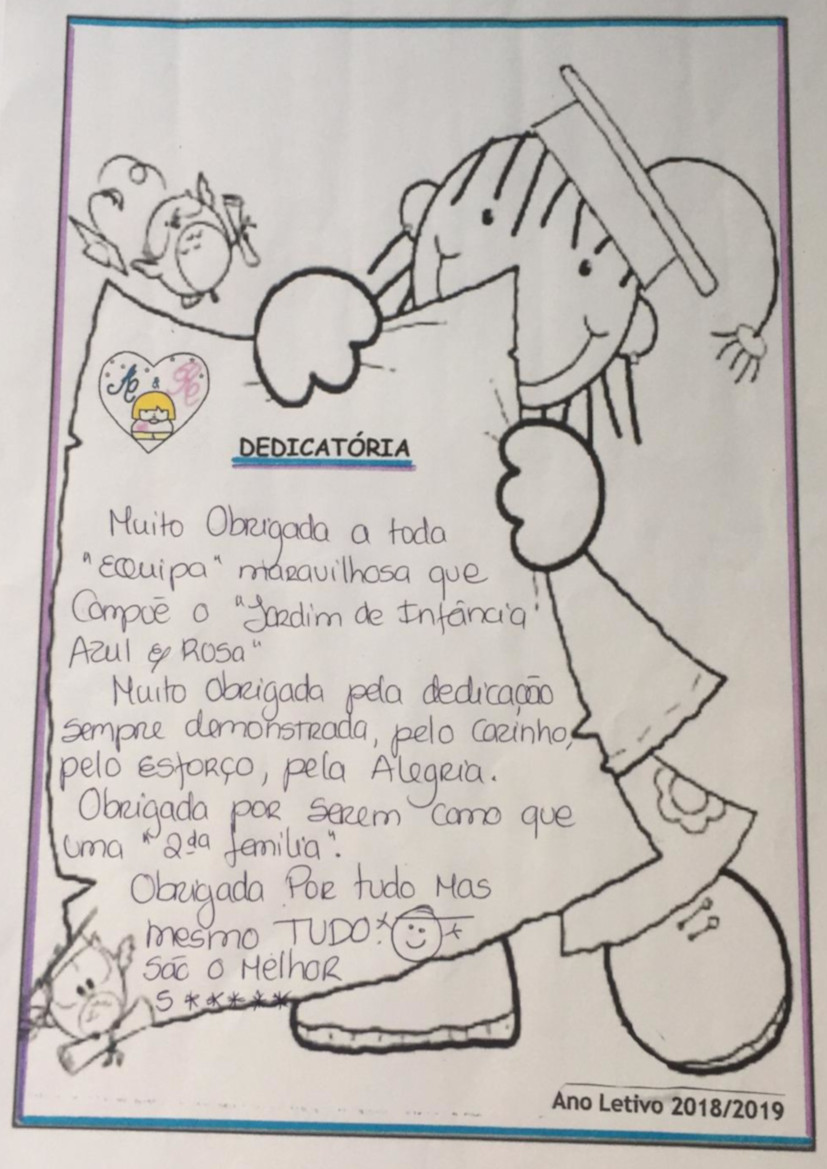 A & R
DEDICATÓRIA
Muito Obrigada a toda
"Equipa" maravilhosa que
Compõe o "Jardim de Infância
Azul & Rosa"
Muito Obrigada pela dedicação
sempre demonstrada, pelo carinho,
pelo Esforço, pela Alegria.
Obrigada por serem como que
uma "2da família".
Obrigada Por tudo Mas
mesmo TUDO!
São o Melhor
5 *****
Ano Letivo 2018/2019